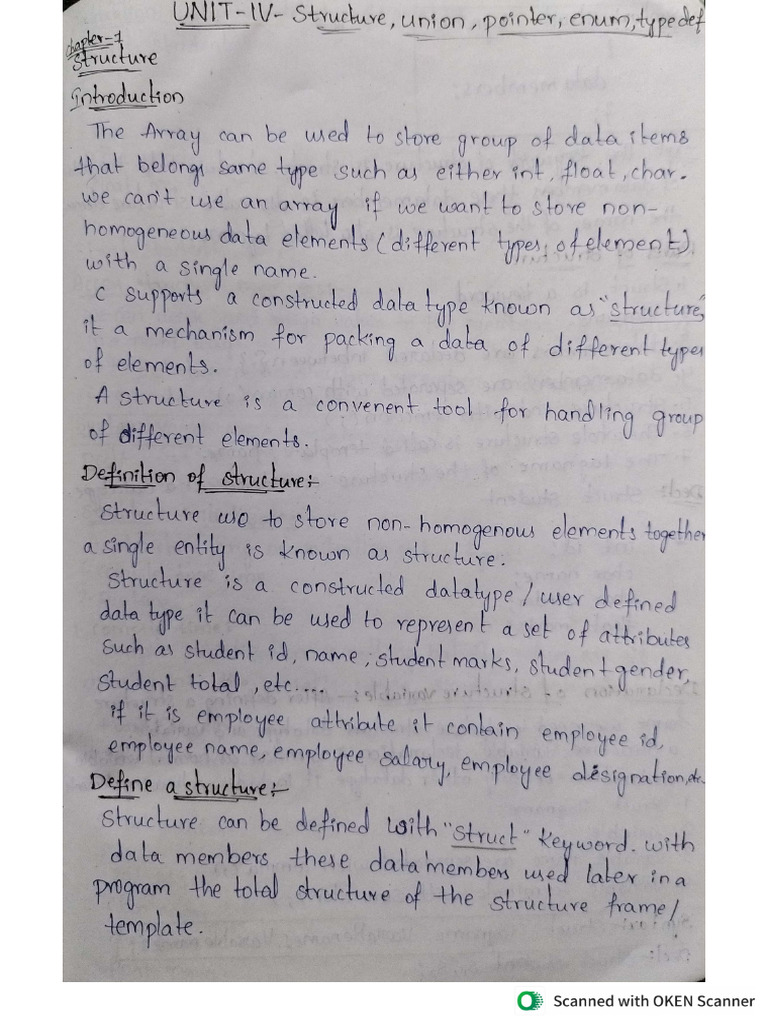 UNIT-IV- Structure, union, pointer, enum, typedef
chapter-1
Structure
Introduction
The Array can be used to store group of data items
that belongs same type such as either int, float, char.
we can't use an array if we want to store non-
homogeneous data elements (different types of element)
with a single name.
C supports a constructed data type known as "structure",
it a mechanism for packing a data of different types
of elements.
A structure is a convenent tool for handling group
of different elements.
Definition of structure:-
Structure use to store non-homogenous elements together
a single entity is known as structure.
Structure is a constructed datatype / user defined
data type it can be used to represent a set of attributes
such as student id, name, student marks, student gender,
student total, etc....
if it is employee attribute it contain employee id,
employee name, employee salary, employee designation, etc.
Define a structure:-
Structure can be defined with "struct" keyword. with
data members these data members used later in a
program the total structure of the structure frame/
template.
Scanned with OKEN Scanner